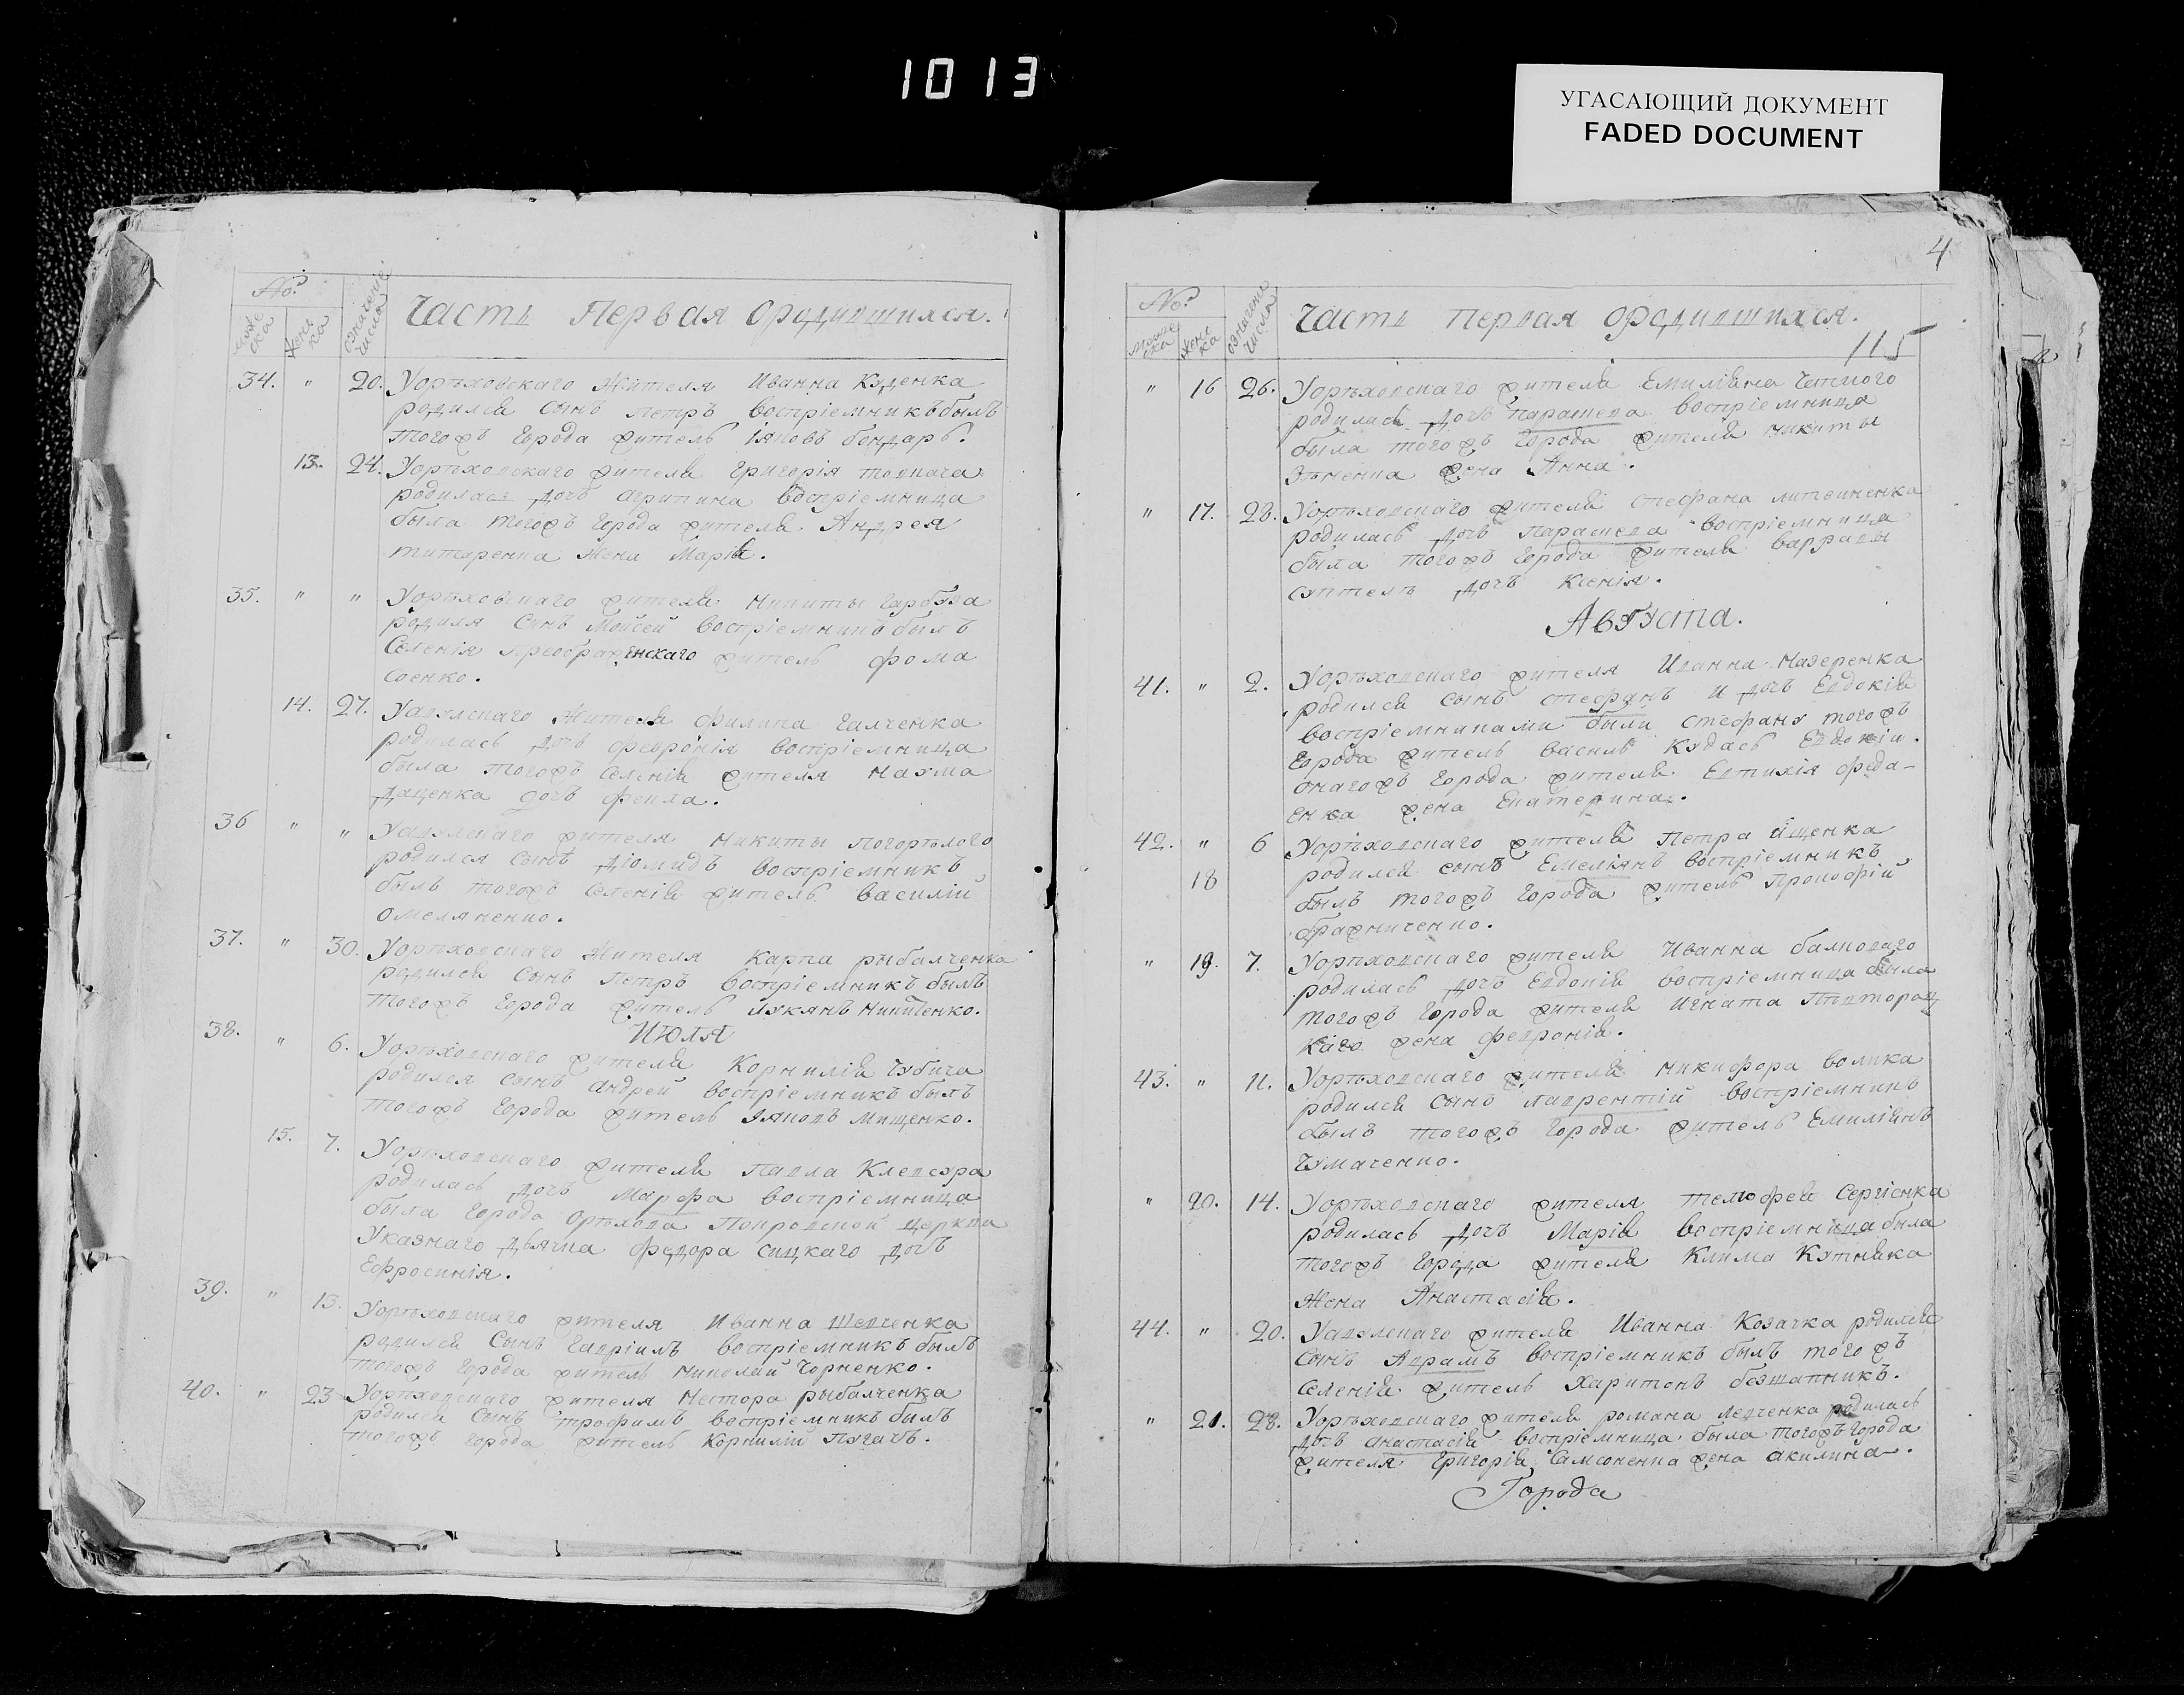 1013
УГАСАЮЩИЙ ДОКУМЕНТ
FADED DOCUMENT
No.
муже ска
женс ка
означенiе числа
Часть Первая Ородившихся.
34. " 20. Уорѣховскаго Жителя Иванна Куденка
родился сынъ Петръ воспрiемникъ былъ
тогожъ города житель Iяковъ бондарь.
13. 24. Уорѣховскаго жителя григорiя товпача
родилась дочъ агрипина воспрiемница
была тогожъ города жителя Андрея
титаренка жена Марiя.
35. " " Уорѣховскаго жителя Никиты гарбуза
родился Сынъ Мойсей воспрiемникъ былъ
Селенiя преображенскаго житель фома
соенко.
14. 27. Уавулскаго Жителя филипа галченка
родилась дочъ феоронiя воспрiемница
была тогожъ Селенiя жителя наума
даценка дочъ фекла.
36 " " Уавулскаго жителя Никиты погорѣлого
родился сынъ дiомидъ воспрiемникъ
былъ тогожъ Селенiя житель василiй
омеляненко.
37. " 30. Уорѣховскаго Жителя карпа рыбалченка
родился сынъ Петръ воспрiемникъ былъ
тогожъ города житель лукянъ Никитенко.
Июля
38. " 6. Уорѣховскаго жителя Корнилiя Чубича
родился сынъ андрей воспрiемникъ былъ
тогожъ города житель Iяковъ мищенко.
15. 7. Уорѣховскаго жителя Павла Клевсура
родилась дочъ Марфа воспрiемница
была города орѣхова Покровской церкви
Указнаго дьячка федора сицкаго дочъ
Ефросинiя.
39. " 13. Уорѣховскаго жителя Иванна Шевченка
родился Сынъ гаврiилъ воспрiемникъ былъ
тогожъ города житель Николай Чорненко.
40. " 23 Уорѣховскаго жителя Нестора рыбалченка
родился сынъ трофимъ воспрiемникъ былъ
тогожъ города житель Корнилiй Пугачъ.
4
No.
муже ска
женс ка
означенiе числа
Часть первая ородившихся.
115
" 16 26. Уорѣховскаго жителя Емилiяна Чепного
родилась дочъ параскева воспрiемница
была тогожъ города жителя никиты
жена Анна.
" 17. 28. Уорѣховскаго жителя стефана литвиненка
родилась дочъ Параскева воспрiемница
была тогожъ города жителя варравы
дочъ Ксенiя.
Августа.
41. " 2. Уорѣховскаго жителя Иванна Назеренка
родился сынъ стефанъ и дочъ Евдокiя
воспрiемниками были стефану тогожъ
города житель василь Кудась Евдокiи
онагожъ города жителя Евтихiя феда-
енка жена Екатерина.
42. " 6 Уорѣховскаго жителя Петра ищенка
18 родился сынъ Емелiянъ воспрiемникъ
былъ тогожъ города житель Прокофiй
бражниченко.
" 19. 7. Уорѣховскаго жителя Иванна балковаго
родилась дочъ Евдокiя воспрiемница была
тогожъ города жителя Игната Подгород
каго жена Февронiя.
43. " 11. Уорѣховскаго жителя никифора волика
родился сынъ лаврентiй воспрiемникъ
былъ тогожъ города житель Емилiянъ
Чумаченко.
" 20. 14. Уорѣховскаго жителя тимофея Сергiенка
родилась дочъ Марiя воспрiемница была
тогожъ города жителя Клима Кутняка
Жена Анастасiя.
44. " 20. Уавулскаго жителя Иванна Козачка родился
сынъ Адрамъ воспрiемникъ былъ тогожъ
селенiя житель харитонъ безшапникъ.
" 21. 28. Уорѣховскаго жителя романа левченка родилась
дочъ анастасiя воспрiемница была тогожъ города
жителя григорiя Самсоненка жена акилина.
Города